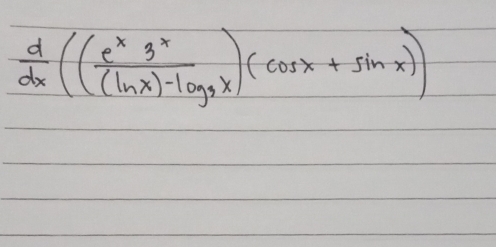 d/dx (((e^x 3^x)/((ln x) - log₃ x)) (cos x + sin x))